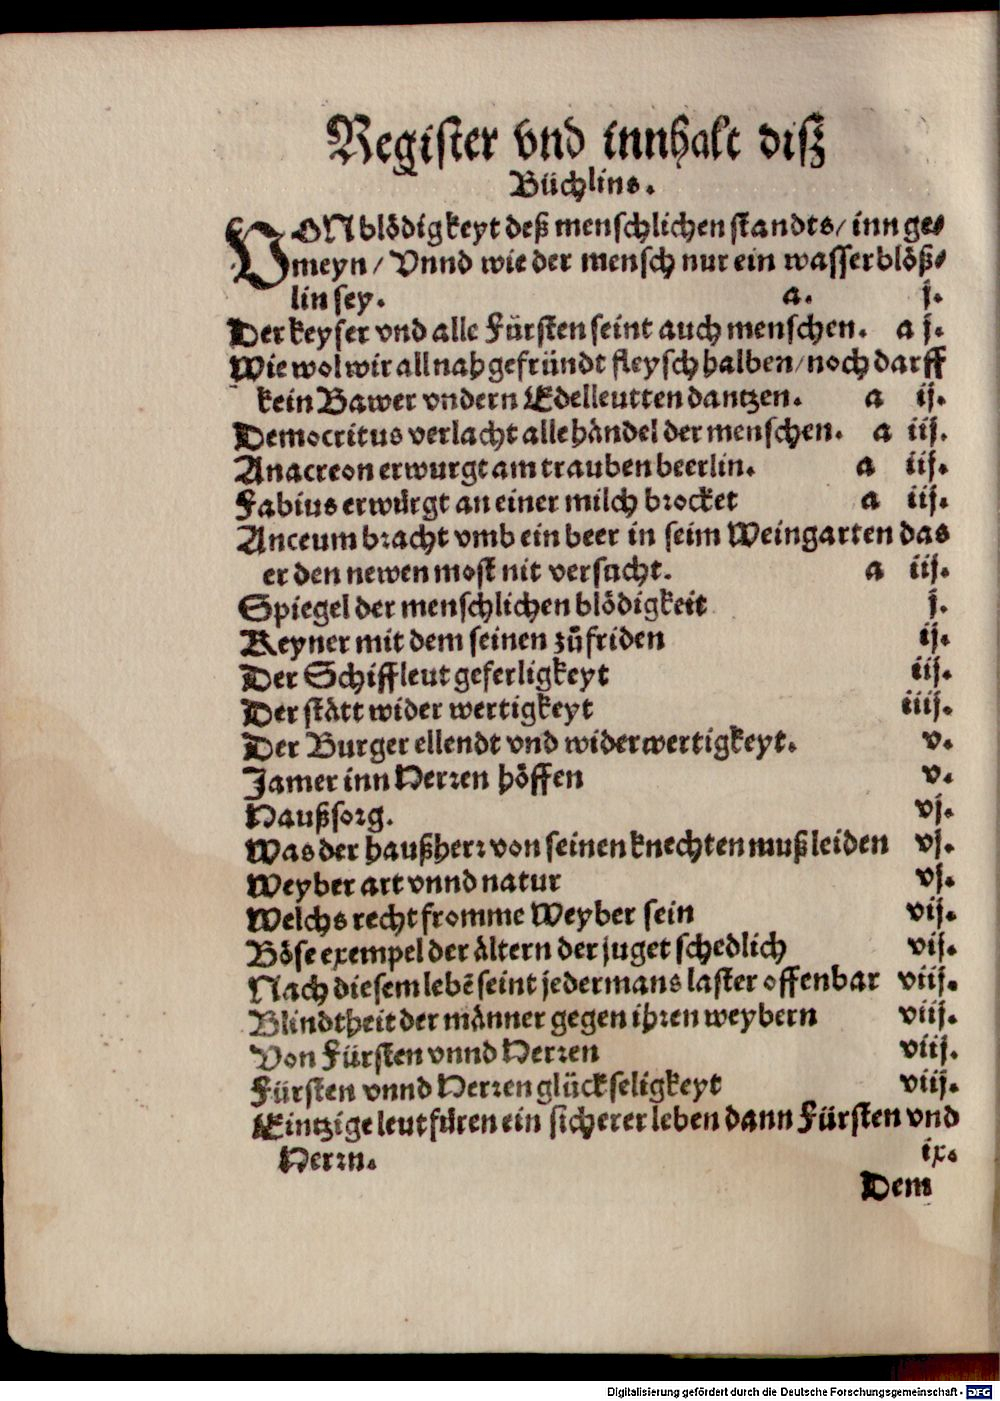 Register vnd innhalt diſz
Büchlins.
VON blödigkeyt deß menſchlichen ſtandts/ inn ge⸗
meyn/ Vnnd wie der menſch nur ein waſſerblöß⸗
lin ſey. a. j.
Der keyſer vnd alle Fürſten ſeint auch menſchen. a j.
Wie wol wir all nah gefründt fleyſch halben/ noch darff
kein Bawer vndern Edelleutten dantzen. a ij.
Democritus verlacht alle händel der menſchen. a iij.
Anacreon erwurgt am trauben beerlin. a iij.
Fabius erwürgt an einer milch brocket a iij.
Anceum bracht vmb ein beer in ſeim Weingarten das
er den newen moſt nit verſucht. a iij.
Spiegel der menſchlichen blödigkeit j.
Keyner mit dem ſeinen zůfriden ij.
Der Schiffleut geferligkeyt iij.
Der ſtätt wider wertigkeyt iiij.
Der Burger ellendt vnd widerwertigkeyt. v.
Jamer inn Herren höffen v.
Haußſorg. vj.
Was der haußherr von ſeinen knechten muß leiden vj.
Weyber art vnnd natur vj.
Welchs recht fromme Weyber ſein vij.
Böſe exempel der ältern der juget ſchedlich vij.
Nach dieſem lebē ſeint jedermans laſter offenbar viij.
Blindtheit der männer gegen ihren weybern viij.
Von Fürſten vnnd Herren viij.
Fürſten vnnd Herren glückſeligkeyt viij.
Eintzige leut füren ein ſicherer leben dann Fürſten vnd
Herrn. ix.
Dem
Digitalisierung gefördert durch die Deutsche Forschungsgemeinschaft - DFG